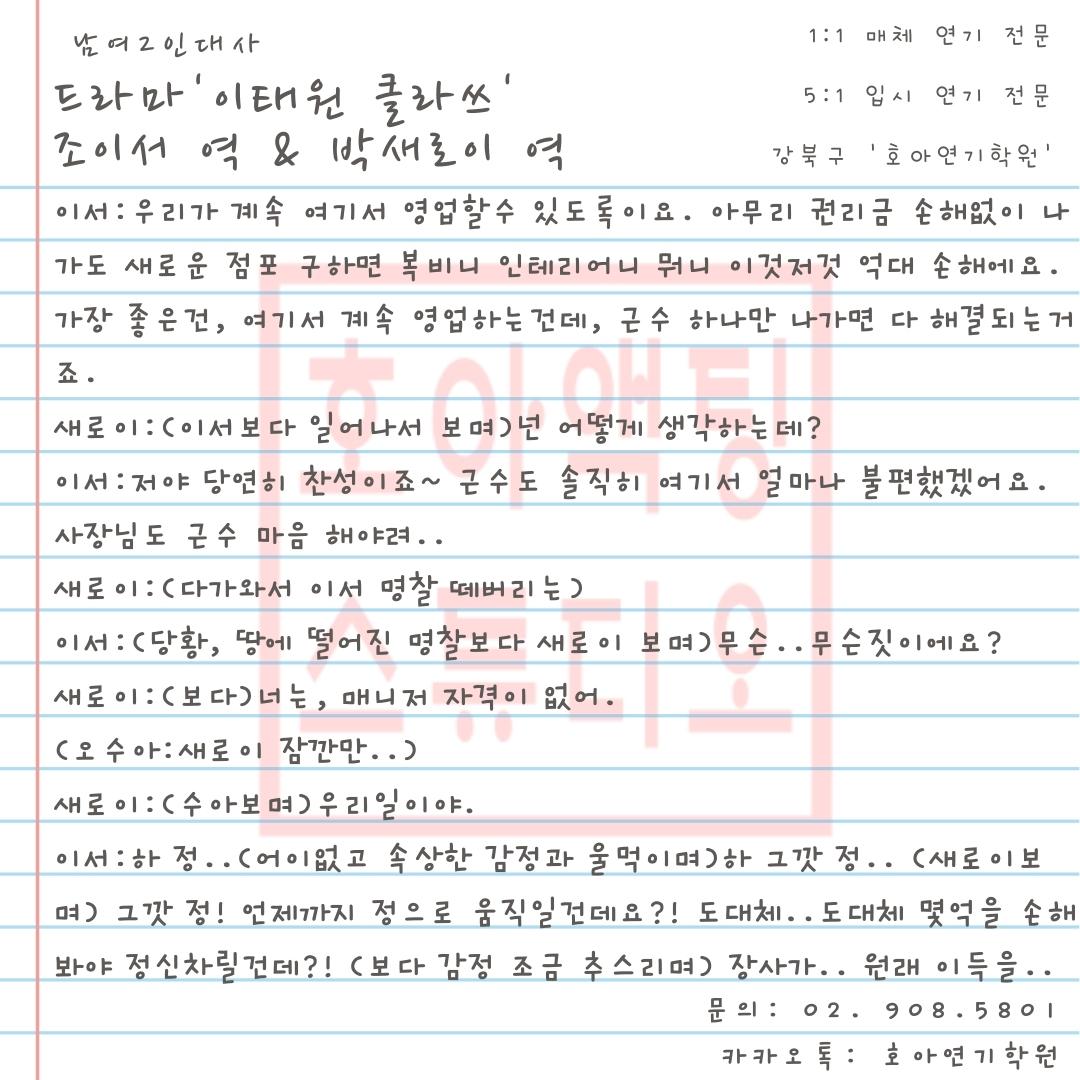 남여2인대사
1:1 매체 연기 전문
드라마'이태원 클라쓰'
5:1 입시 연기 전문
조이서 역 & 박새로이 역
강북구 '호아연기학원'
이서:우리가 계속 여기서 영업할수 있도록이요. 아무리 권리금 손해없이 나
가도 새로운 점포 구하면 복비니 인테리어니 뭐니 이것저것 억대 손해에요.
가장 좋은건, 여기서 계속 영업하는건데, 근수 하나만 나가면 다 해결되는거
죠.
새로이:(이서보다 일어나서 보며)넌 어떻게 생각하는데?
이서:저야 당연히 찬성이죠~ 근수도 솔직히 여기서 얼마나 불편했겠어요.
사장님도 근수 마음 해야려..
새로이:(다가와서 이서 명찰 떼버리는)
이서:(당황, 땅에 떨어진 명찰보다 새로이 보며)무슨..무슨짓이에요?
새로이:(보다)너는, 매니저 자격이 없어.
(오수아:새로이 잠깐만..)
새로이:(수아보며)우리일이야.
이서:하 정..(어이없고 속상한 감정과 울먹이며)하 그깟 정.. (새로이보
며) 그깟 정! 언제까지 정으로 움직일건데요?! 도대체..도대체 몇억을 손해
봐야 정신차릴건데?! (보다 감정 조금 추스리며) 장사가.. 원래 이득을..
문의: 02. 908.5801
카카오톡: 호아연기학원
호아액팅
스튜디오